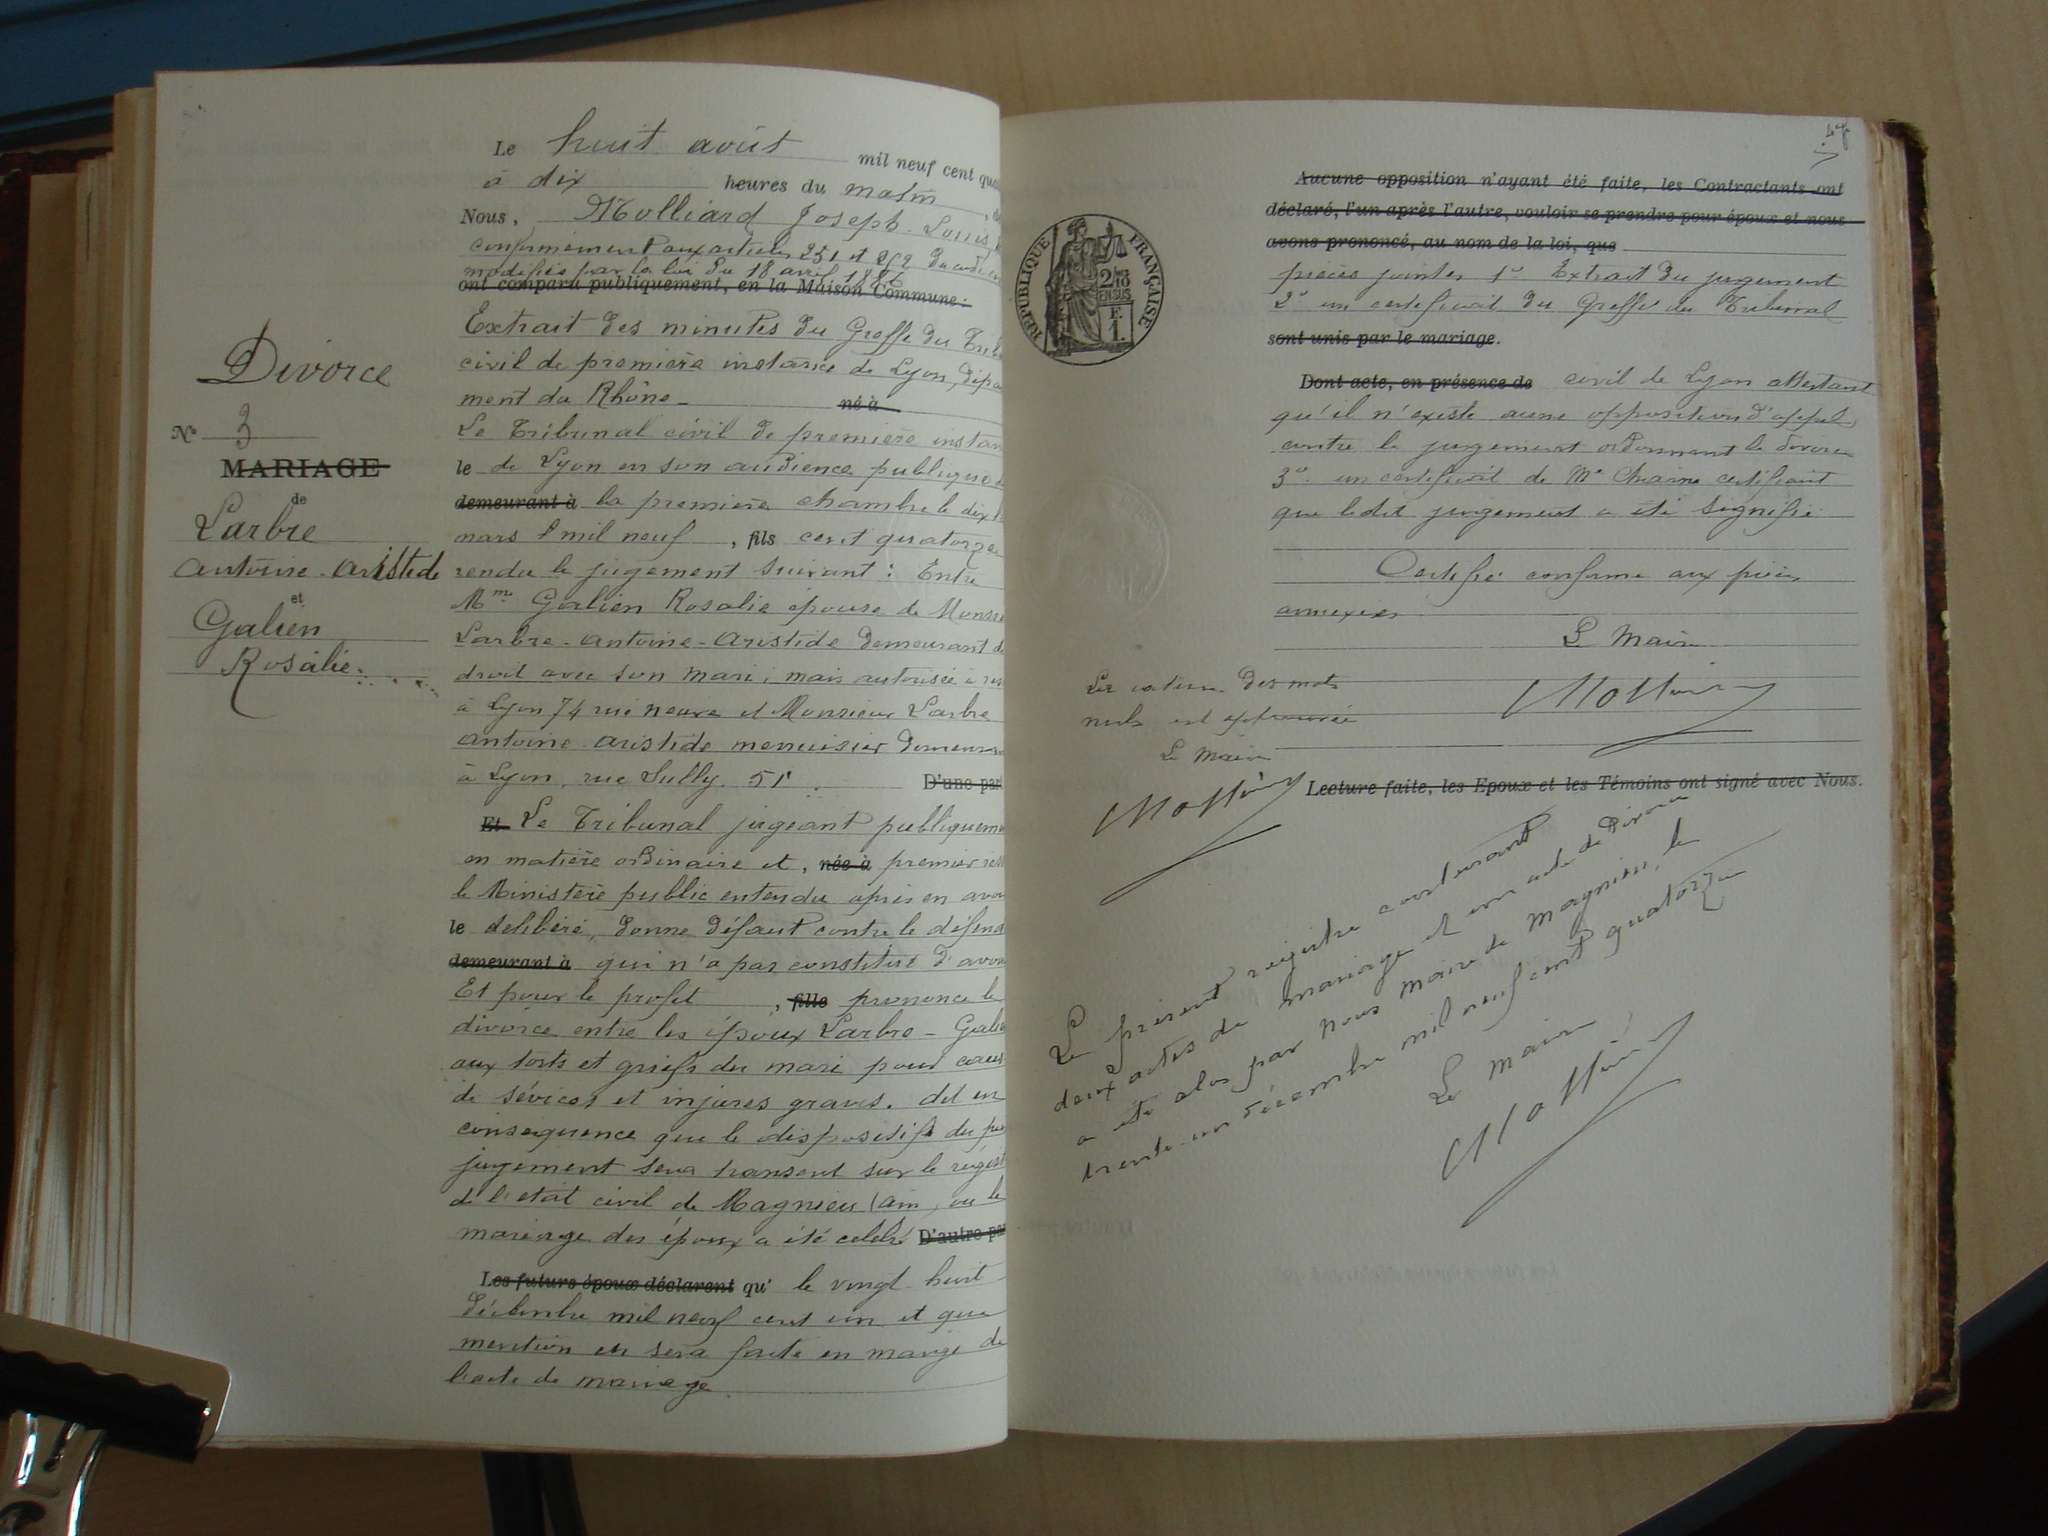 Divorce
N° 3
MARIAGE
de
Larbre
Antoine-Aristide
et
Galien
Rosalie
Le huit août mil neuf cent qua
à dix heures du matin
Nous, Molliard Joseph-Louis
conformément aux articles 251 et 252 du code
modifiés par la loi du 18 avril 1886
ont comparu publiquement, en la Maison Commune:
Extrait des minutes du Greffe du Trib
civil de première instance de Lyon, dépa
ment du Rhône - né à
Le Tribunal civil de première instan
le de Lyon en son audience publique
demeurant à la première chambre le dix
mars mil neuf , fils cent quatorze
rendu le jugement suivant: Entre
Mme Galien Rosalie épouse de Monsie
Larbre-Antoine-Aristide demeurant de
droit avec son mari, mais autorisée à
à Lyon 74 rue neuve et Monsieur Larbre
Antoine Aristide menuisier demeura
à Lyon, rue Sully. 51 D'une part
Et Le Tribunal jugeant publiqueme
en matière ordinaire et, née à premier
le Ministère public entendu après en avoi
le délibéré, donne défaut contre le défend
demeurant à qui n'a pas constitué d'avou
Et pour le profit , fille prononce le
divorce entre les époux Larbre - Galie
aux torts et griefs du mari pour caus
de sévices et injures graves. dit en
conséquence que le dispositif du
jugement sera transcrit sur le regist
de l'état civil de Magnieu (ain, ou le
mariage des époux a été célébré D'autre pa
Les futurs époux déclarent qu' le vingt-huit
décembre mil neuf cent un et que
mention en sera faite en marge de
l'acte de mariage
RÉPUBLIQUE FRANÇAISE
2/10 EN SUS
F. 1.
Aucune opposition n'ayant été faite, les Contractants ont
déclaré, l'un après l'autre, vouloir se prendre pour époux et nous
avons prononcé, au nom de la loi, que
pièces jointes 1° Extrait du jugement
2° un certificat du Greffe du Tribunal
sont unis par le mariage.
Dont acte, en présence de civil de Lyon attestant
qu'il n'existe aucune opposition d'appel
contre le jugement ordonnant le divorce
3° un certificat de Me certifiant
que ledit jugement a été signifié
Certifié conforme aux pièces
annexées
Le Maire
Molliard
des mots
nuls est approuvée
Le Maire
Molliard
Lecture faite, les Epoux et les Témoins ont signé avec Nous.
Le présent registre contenant
deux actes de mariage et un acte de divorce
a été clos par nous maire de Magnieu, le
trente-un décembre mil neuf cent quatorze
Le Maire
Molliard